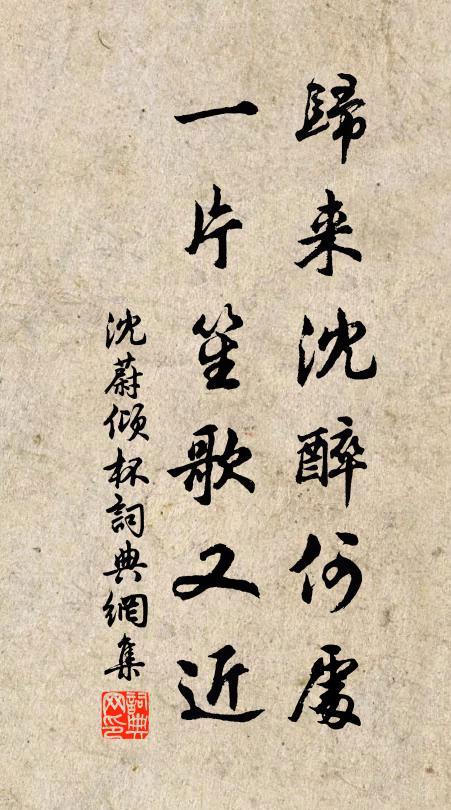 歸来沈醉何處
一片笙歌又近
沈蔚傾杯詞典網集
詞典网印